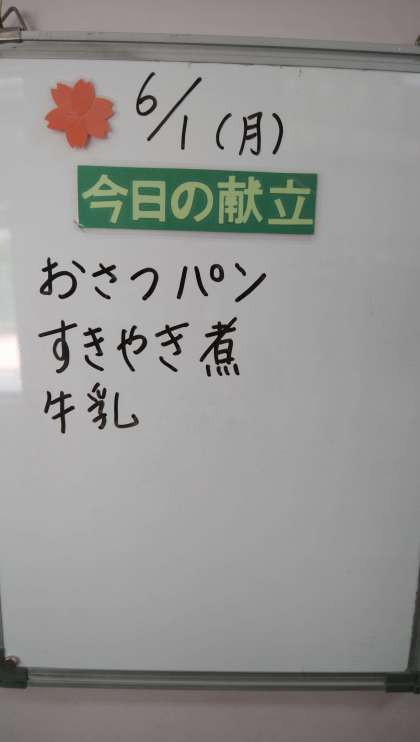 6/1(月)
今日の献立
おさつパン
すきやき煮
牛乳